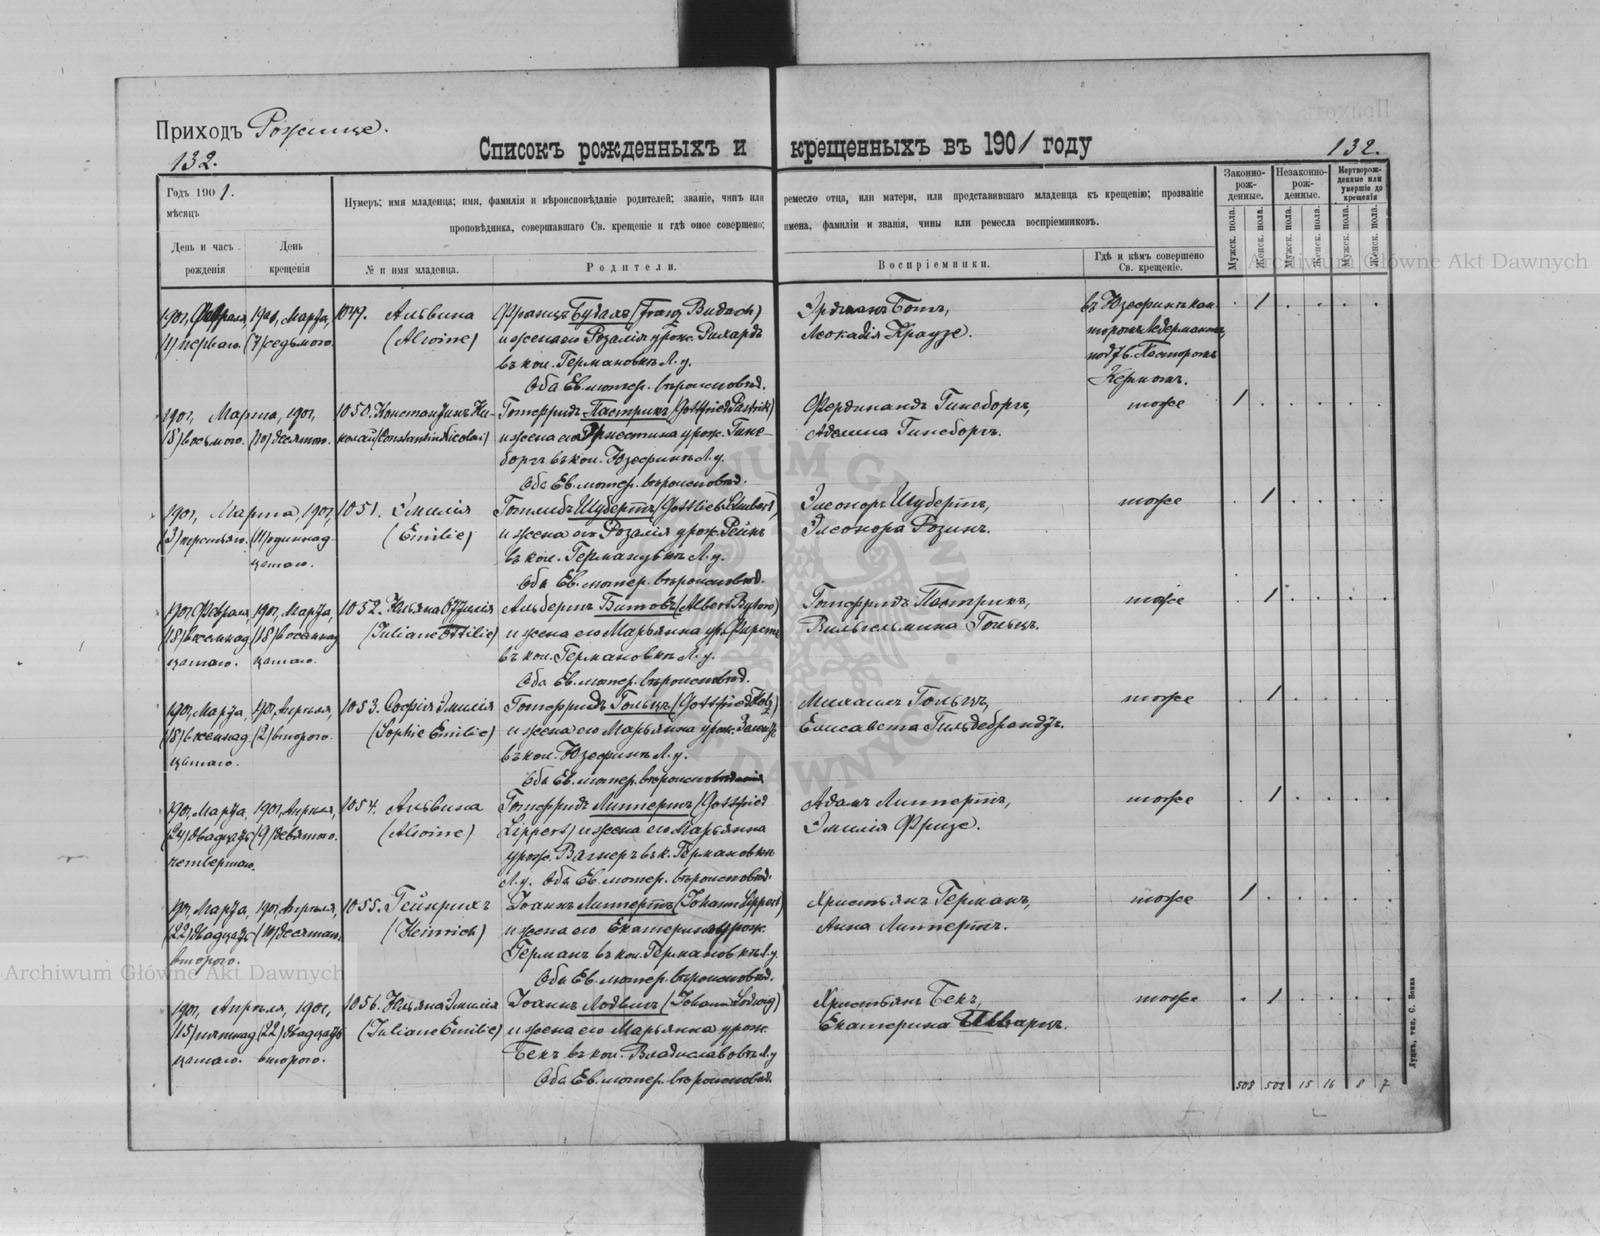 Приходъ Рожище.
132.
Списокъ рожденныхъ и крещенныхъ въ 1901 году
132.
Годъ 1901.
мѣсяцъ
День и часъ рожденія
День крещенія
Нумеръ; имя младенца; имя, фамилія и вѣроисповѣданіе родителей; званіе, чинъ или ремесло отца, или матери, или представившаго младенца къ крещенію; прозваніе
проповѣдника, совершавшаго Св. крещеніе и гдѣ оное совершено; имена, фамиліи и званія, чины или ремесла воспріемниковъ.
№ и имя младенца.
Родители.
Воспріемники.
Гдѣ и кѣмъ совершено Св. крещеніе.
Законно-рож-денные.
Незаконно-рож-денные.
Мертворож-денные или умершіе до крещенія
Мужск. пола.
Женск. пола.
Мужск. пола.
Женск. пола.
Мужск. пола.
Женск. пола.
1901, Февраля, 1901, Марта, 1049. Альвина Францъ Будахъ (Franz Budach) Эрдманъ Ботъ, въ Юзефинѣ кан- 1
(1) перваго. (7) седьмого. (Alwine) и жена его Розалія урож. Рихардъ Леокадія Краузе. торомъ Ледерманомъ,
въ кол. Германовкѣ Л. у. подтв. Пасторомъ
Оба Ев. лютер. вѣроисповѣд. Кермомъ.
1901, Марта, 1901, 1050. Константинъ Ни- Готфридъ Пастрикъ (Gottfried Pastrik) Фердинандъ Гинсборгъ, тоже 1
(8) восьмого. (10) десятого. колай (Constantin Nicolai) и жена его Эрнестина урож. Гинс- Аделина Гинсборгъ.
боргъ въ кол. Юзефинѣ Л. у.
Оба Ев. лютер. вѣроисповѣд.
1901, Марта, 1901, 1051. Эмилія Готлибъ Шубертъ (Gottlieb Schubert) Элеоноръ Шубертъ, тоже 1
(3) третьяго. (11) одиннад- (Emilie) и жена его Розалія урож. Рейнъ Элеонора Розинъ.
цатаго. въ кол. Германувкѣ Л. у.
Оба Ев. лютер. вѣроисповѣд.
1901, Февраля, 1901, Марта, 1052. Юльяна Оттилія Альбертъ Битовъ (Albert Bytow) Готфридъ Пастрикъ, тоже 1
(18) восемнад (18) восемнад (Juliane Ottilie) и жена его Марьянна ур. Фирсте Вильгельмина Гольцъ.
цатаго. цатаго. въ кол. Германовкѣ Л. у.
Оба Ев. лютер. вѣроисповѣд.
1901, Марта, 1901, Апрѣля, 1053. Софія Эмилія Готфридъ Гольцъ (Gottfried Holz) Михаилъ Гольцъ, тоже 1
(18) восемнад (2) второго. (Sophie Emilie) и жена его Марьянна урож. Елисавета Гильдебрандтъ.
цатаго. въ кол. Юзефинѣ Л. у.
Оба Ев. лютер. вѣроисповѣданія
1901, Марта, 1901, Апрѣля, 1054. Альвина Готфридъ Липпертъ (Gottfried Адамъ Липпертъ, тоже 1
(24) двадцать (9) девятого. (Alwine) Lippert) и жена его Марьянна Эмилія Фризе.
четвертаго. урож. Вагнеръ въ к. Германовкѣ
Л. у. Оба Ев. лютер. вѣроисповѣд.
1901, Марта, 1901, Апрѣля, 1055. Гейнрихъ Іоаннъ Липпертъ (Johann Lippert) Христьянъ Германъ, тоже 1
(22) двадцать (10) десятаго. (Heinrich) и жена его Екатерина урож. Анна Липпертъ.
второго. Германъ въ кол. Германовкѣ Л. у.
Оба Ев. лютер. вѣроисповѣд.
1901, Апрѣля, 1901, 1056. Юльяна Эмилія Іоаннъ Лодвигъ (Johann Lodwig) Христьянъ Бекъ, тоже 1
(15) пятнад (22) двадцать (Juliane Emilie) и жена его Марьянна урож. Екатерина Шварцъ.
цатаго. второго. Бекъ въ кол. Владиславовкѣ Л. у
Оба Ев. лютер. вѣроисповѣд.
508 502 15 16 8 7
Луцкъ, тип. С. Бонка
Archiwum Główne Akt Dawnych
Archiwum Główne Akt Dawnych